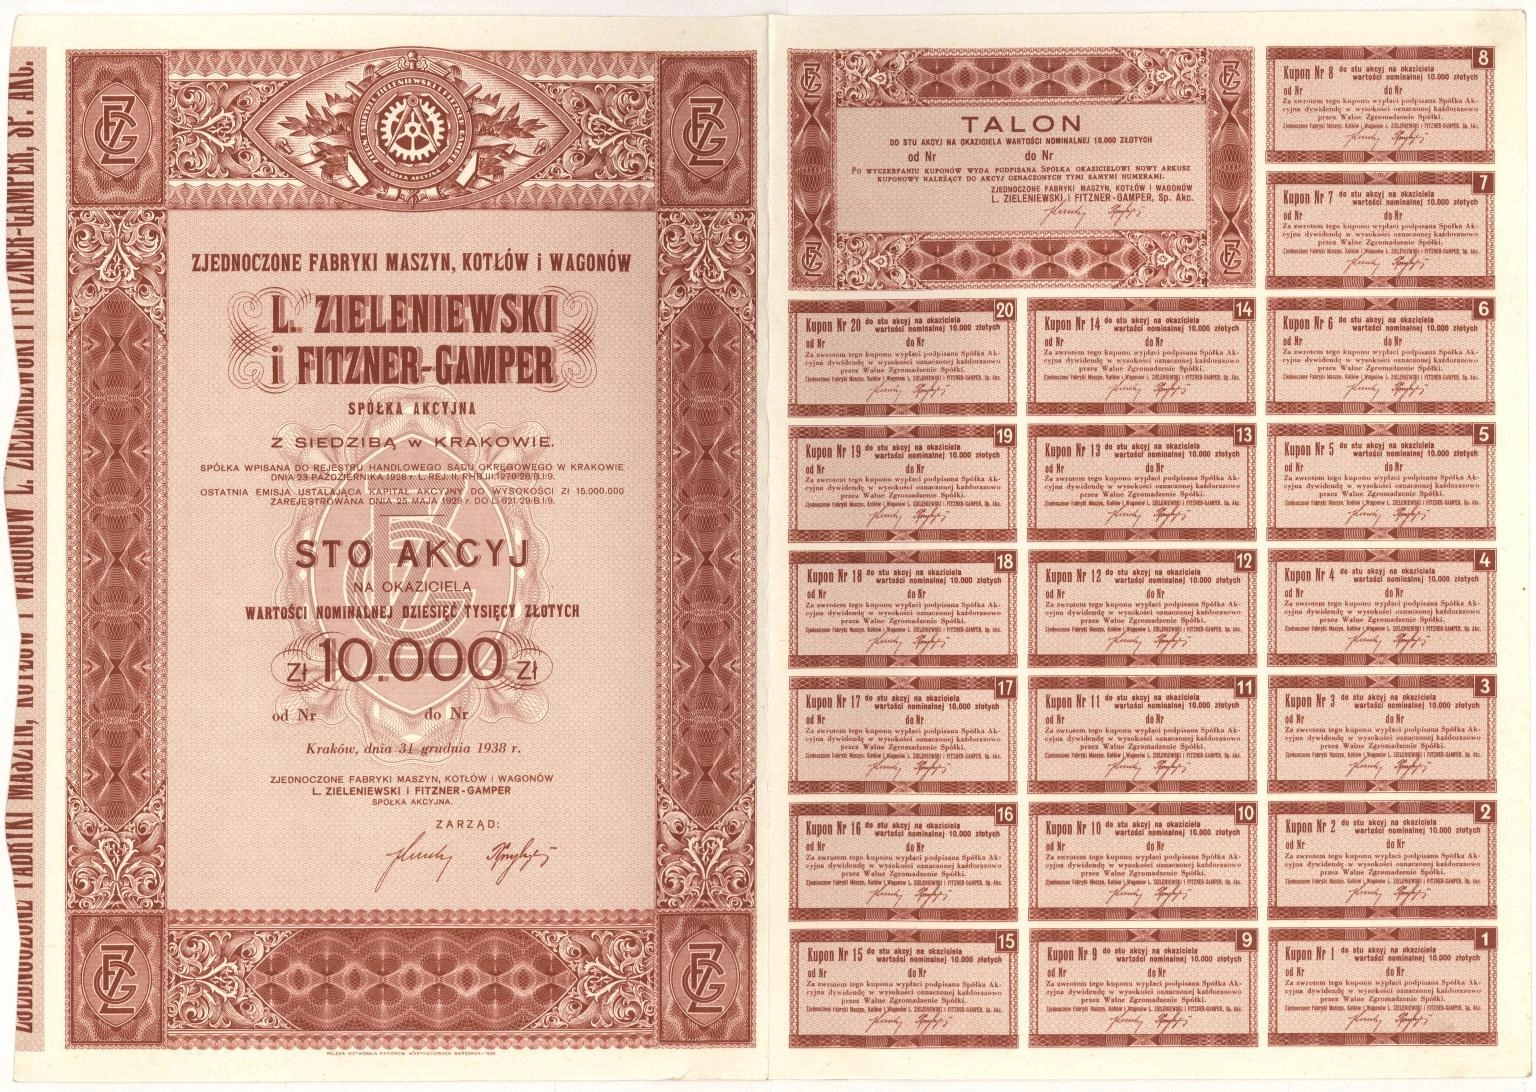 ZJEDNOCZONE FABRYKI MASZYN, KOTŁÓW I WAGONÓW L. ZIELENIEWSKI I FITZNER-GAMPER, SP. AKC.
ZJEDNOCZONE FABRYKI MASZYN, KOTŁÓW i WAGONÓW
L. ZIELENIEWSKI
i FITZNER-GAMPER
SPÓŁKA AKCYJNA
Z SIEDZIBĄ w KRAKOWIE.
SPÓŁKA WPISANA DO REJESTRU HANDLOWEGO SĄDU OKRĘGOWEGO W KRAKOWIE
DNIA 23 PAŹDZIERNIKA 1928 r. L. REJ. II. RHB.III.1270/28/B.I/9.
OSTATNIA EMISJA USTALAJĄCA KAPITAŁ AKCYJNY DO WYSOKOŚCI Zł 15.000.000
ZAREJESTROWANA DNIA 25 MAJA 1929 r. DO L. 621/29/B.I/9.
STO AKCYJ
NA OKAZICIELA
WARTOŚCI NOMINALNEJ DZIESIĘĆ TYSIĘCY ZŁOTYCH
Zł 10.000 Zł
od Nr do Nr
Kraków, dnia 31 grudnia 1938 r.
ZJEDNOCZONE FABRYKI MASZYN, KOTŁÓW i WAGONÓW
L. ZIELENIEWSKI i FITZNER-GAMPER
SPÓŁKA AKCYJNA.
ZARZĄD:
POLSKA WYTWÓRNIA PAPIERÓW WARTOŚCIOWYCH WARSZAWA-1939
TALON
DO STU AKCYJ NA OKAZICIELA WARTOŚCI NOMINALNEJ 10.000 ZŁOTYCH
od Nr do Nr
PO WYCZERPANIU KUPONÓW WYDA PODPISANA SPÓŁKA OKAZICIELOWI NOWY ARKUSZ
KUPONOWY NALEŻĄCY DO AKCYJ OZNACZONYCH TYMI SAMYMI NUMERAMI.
ZJEDNOCZONE FABRYKI MASZYN, KOTŁÓW i WAGONÓW
L. ZIELENIEWSKI i FITZNER-GAMPER, Sp. Akc.
20
Kupon Nr 20 do stu akcyj na okaziciela
wartości nominalnej 10.000 złotych
od Nr do Nr
Za zwrotem tego kuponu wypłaci podpisana Spółka Ak-
cyjna dywidendę w wysokości oznaczonej każdorazowo
przez Walne Zgromadzenie Spółki.
Zjednoczone Fabryki Maszyn, Kotłów i Wagonów L. ZIELENIEWSKI i FITZNER-GAMPER, Sp. Akc.
19
Kupon Nr 19 do stu akcyj na okaziciela
wartości nominalnej 10.000 złotych
od Nr do Nr
Za zwrotem tego kuponu wypłaci podpisana Spółka Ak-
cyjna dywidendę w wysokości oznaczonej każdorazowo
przez Walne Zgromadzenie Spółki.
Zjednoczone Fabryki Maszyn, Kotłów i Wagonów L. ZIELENIEWSKI i FITZNER-GAMPER, Sp. Akc.
18
Kupon Nr 18 do stu akcyj na okaziciela
wartości nominalnej 10.000 złotych
od Nr do Nr
Za zwrotem tego kuponu wypłaci podpisana Spółka Ak-
cyjna dywidendę w wysokości oznaczonej każdorazowo
przez Walne Zgromadzenie Spółki.
Zjednoczone Fabryki Maszyn, Kotłów i Wagonów L. ZIELENIEWSKI i FITZNER-GAMPER, Sp. Akc.
17
Kupon Nr 17 do stu akcyj na okaziciela
wartości nominalnej 10.000 złotych
od Nr do Nr
Za zwrotem tego kuponu wypłaci podpisana Spółka Ak-
cyjna dywidendę w wysokości oznaczonej każdorazowo
przez Walne Zgromadzenie Spółki.
Zjednoczone Fabryki Maszyn, Kotłów i Wagonów L. ZIELENIEWSKI i FITZNER-GAMPER, Sp. Akc.
16
Kupon Nr 16 do stu akcyj na okaziciela
wartości nominalnej 10.000 złotych
od Nr do Nr
Za zwrotem tego kuponu wypłaci podpisana Spółka Ak-
cyjna dywidendę w wysokości oznaczonej każdorazowo
przez Walne Zgromadzenie Spółki.
Zjednoczone Fabryki Maszyn, Kotłów i Wagonów L. ZIELENIEWSKI i FITZNER-GAMPER, Sp. Akc.
15
Kupon Nr 15 do stu akcyj na okaziciela
wartości nominalnej 10.000 złotych
od Nr do Nr
Za zwrotem tego kuponu wypłaci podpisana Spółka Ak-
cyjna dywidendę w wysokości oznaczonej każdorazowo
przez Walne Zgromadzenie Spółki.
Zjednoczone Fabryki Maszyn, Kotłów i Wagonów L. ZIELENIEWSKI i FITZNER-GAMPER, Sp. Akc.
14
Kupon Nr 14 do stu akcyj na okaziciela
wartości nominalnej 10.000 złotych
od Nr do Nr
Za zwrotem tego kuponu wypłaci podpisana Spółka Ak-
cyjna dywidendę w wysokości oznaczonej każdorazowo
przez Walne Zgromadzenie Spółki.
Zjednoczone Fabryki Maszyn, Kotłów i Wagonów L. ZIELENIEWSKI i FITZNER-GAMPER, Sp. Akc.
13
Kupon Nr 13 do stu akcyj na okaziciela
wartości nominalnej 10.000 złotych
od Nr do Nr
Za zwrotem tego kuponu wypłaci podpisana Spółka Ak-
cyjna dywidendę w wysokości oznaczonej każdorazowo
przez Walne Zgromadzenie Spółki.
Zjednoczone Fabryki Maszyn, Kotłów i Wagonów L. ZIELENIEWSKI i FITZNER-GAMPER, Sp. Akc.
12
Kupon Nr 12 do stu akcyj na okaziciela
wartości nominalnej 10.000 złotych
od Nr do Nr
Za zwrotem tego kuponu wypłaci podpisana Spółka Ak-
cyjna dywidendę w wysokości oznaczonej każdorazowo
przez Walne Zgromadzenie Spółki.
Zjednoczone Fabryki Maszyn, Kotłów i Wagonów L. ZIELENIEWSKI i FITZNER-GAMPER, Sp. Akc.
11
Kupon Nr 11 do stu akcyj na okaziciela
wartości nominalnej 10.000 złotych
od Nr do Nr
Za zwrotem tego kuponu wypłaci podpisana Spółka Ak-
cyjna dywidendę w wysokości oznaczonej każdorazowo
przez Walne Zgromadzenie Spółki.
Zjednoczone Fabryki Maszyn, Kotłów i Wagonów L. ZIELENIEWSKI i FITZNER-GAMPER, Sp. Akc.
10
Kupon Nr 10 do stu akcyj na okaziciela
wartości nominalnej 10.000 złotych
od Nr do Nr
Za zwrotem tego kuponu wypłaci podpisana Spółka Ak-
cyjna dywidendę w wysokości oznaczonej każdorazowo
przez Walne Zgromadzenie Spółki.
Zjednoczone Fabryki Maszyn, Kotłów i Wagonów L. ZIELENIEWSKI i FITZNER-GAMPER, Sp. Akc.
9
Kupon Nr 9 do stu akcyj na okaziciela
wartości nominalnej 10.000 złotych
od Nr do Nr
Za zwrotem tego kuponu wypłaci podpisana Spółka Ak-
cyjna dywidendę w wysokości oznaczonej każdorazowo
przez Walne Zgromadzenie Spółki.
Zjednoczone Fabryki Maszyn, Kotłów i Wagonów L. ZIELENIEWSKI i FITZNER-GAMPER, Sp. Akc.
8
Kupon Nr 8 do stu akcyj na okaziciela
wartości nominalnej 10.000 złotych
od Nr do Nr
Za zwrotem tego kuponu wypłaci podpisana Spółka Ak-
cyjna dywidendę w wysokości oznaczonej każdorazowo
przez Walne Zgromadzenie Spółki.
Zjednoczone Fabryki Maszyn, Kotłów i Wagonów L. ZIELENIEWSKI i FITZNER-GAMPER, Sp. Akc.
7
Kupon Nr 7 do stu akcyj na okaziciela
wartości nominalnej 10.000 złotych
od Nr do Nr
Za zwrotem tego kuponu wypłaci podpisana Spółka Ak-
cyjna dywidendę w wysokości oznaczonej każdorazowo
przez Walne Zgromadzenie Spółki.
Zjednoczone Fabryki Maszyn, Kotłów i Wagonów L. ZIELENIEWSKI i FITZNER-GAMPER, Sp. Akc.
6
Kupon Nr 6 do stu akcyj na okaziciela
wartości nominalnej 10.000 złotych
od Nr do Nr
Za zwrotem tego kuponu wypłaci podpisana Spółka Ak-
cyjna dywidendę w wysokości oznaczonej każdorazowo
przez Walne Zgromadzenie Spółki.
Zjednoczone Fabryki Maszyn, Kotłów i Wagonów L. ZIELENIEWSKI i FITZNER-GAMPER, Sp. Akc.
5
Kupon Nr 5 do stu akcyj na okaziciela
wartości nominalnej 10.000 złotych
od Nr do Nr
Za zwrotem tego kuponu wypłaci podpisana Spółka Ak-
cyjna dywidendę w wysokości oznaczonej każdorazowo
przez Walne Zgromadzenie Spółki.
Zjednoczone Fabryki Maszyn, Kotłów i Wagonów L. ZIELENIEWSKI i FITZNER-GAMPER, Sp. Akc.
4
Kupon Nr 4 do stu akcyj na okaziciela
wartości nominalnej 10.000 złotych
od Nr do Nr
Za zwrotem tego kuponu wypłaci podpisana Spółka Ak-
cyjna dywidendę w wysokości oznaczonej każdorazowo
przez Walne Zgromadzenie Spółki.
Zjednoczone Fabryki Maszyn, Kotłów i Wagonów L. ZIELENIEWSKI i FITZNER-GAMPER, Sp. Akc.
3
Kupon Nr 3 do stu akcyj na okaziciela
wartości nominalnej 10.000 złotych
od Nr do Nr
Za zwrotem tego kuponu wypłaci podpisana Spółka Ak-
cyjna dywidendę w wysokości oznaczonej każdorazowo
przez Walne Zgromadzenie Spółki.
Zjednoczone Fabryki Maszyn, Kotłów i Wagonów L. ZIELENIEWSKI i FITZNER-GAMPER, Sp. Akc.
2
Kupon Nr 2 do stu akcyj na okaziciela
wartości nominalnej 10.000 złotych
od Nr do Nr
Za zwrotem tego kuponu wypłaci podpisana Spółka Ak-
cyjna dywidendę w wysokości oznaczonej każdorazowo
przez Walne Zgromadzenie Spółki.
Zjednoczone Fabryki Maszyn, Kotłów i Wagonów L. ZIELENIEWSKI i FITZNER-GAMPER, Sp. Akc.
1
Kupon Nr 1 do stu akcyj na okaziciela
wartości nominalnej 10.000 złotych
od Nr do Nr
Za zwrotem tego kuponu wypłaci podpisana Spółka Ak-
cyjna dywidendę w wysokości oznaczonej każdorazowo
przez Walne Zgromadzenie Spółki.
Zjednoczone Fabryki Maszyn, Kotłów i Wagonów L. ZIELENIEWSKI i FITZNER-GAMPER, Sp. Akc.